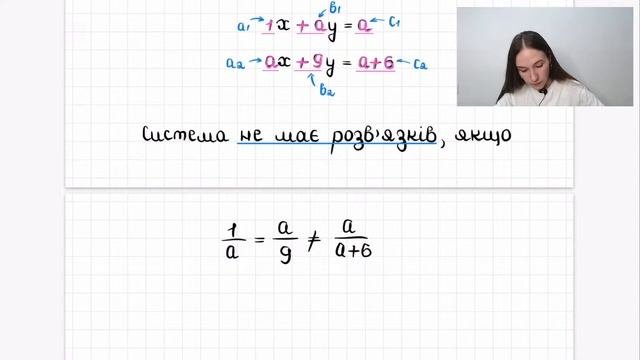 b₁
a₁ 1x + ay = a c₁
a₂ ax + 9y = a+6 c₂
b₂
Система не має розв'язків, якщо
1/a = a/9 ≠ a/a+6